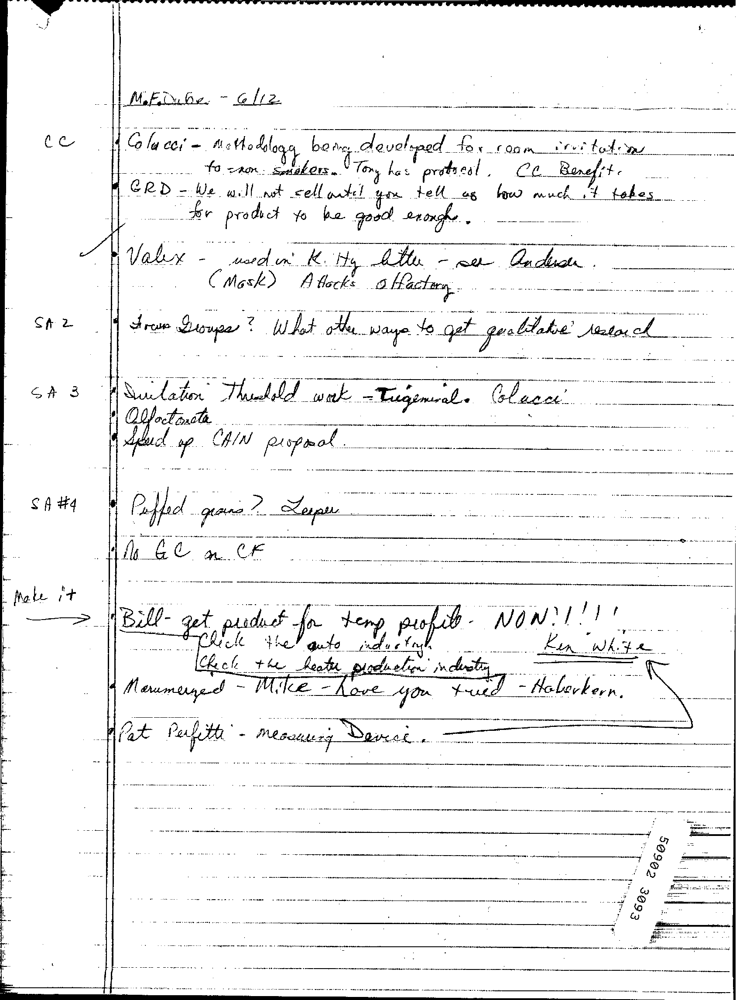 M.F. Dube - 6/12
CC
Colucci - Methodology being developed for room irritation
to non smokers. Tony has protocol. CC Benefit.
GRD - We will not sell until you tell us how much it takes
for product to be good enough.
Valex - used in K. Hg litter - see Anderson.
(Mask) Attacks olfactory
SA 2
Focus Groups? What other ways to get qualitative research
SA 3
Irritation Threshold work - Trigeminal. Colucci
Olfactometer
Speed up CAIN proposal.
SA #4
Puffed grains? Leeper
No GC on CF
Make it
Bill - get product for temp profile - NOW!!!!
Check the auto industry.
Ken White
Check the heater production industry
Marumerized - Mike - have you tried - Haberkern.
Pat Perfetti - measuring Device.
50902 3093